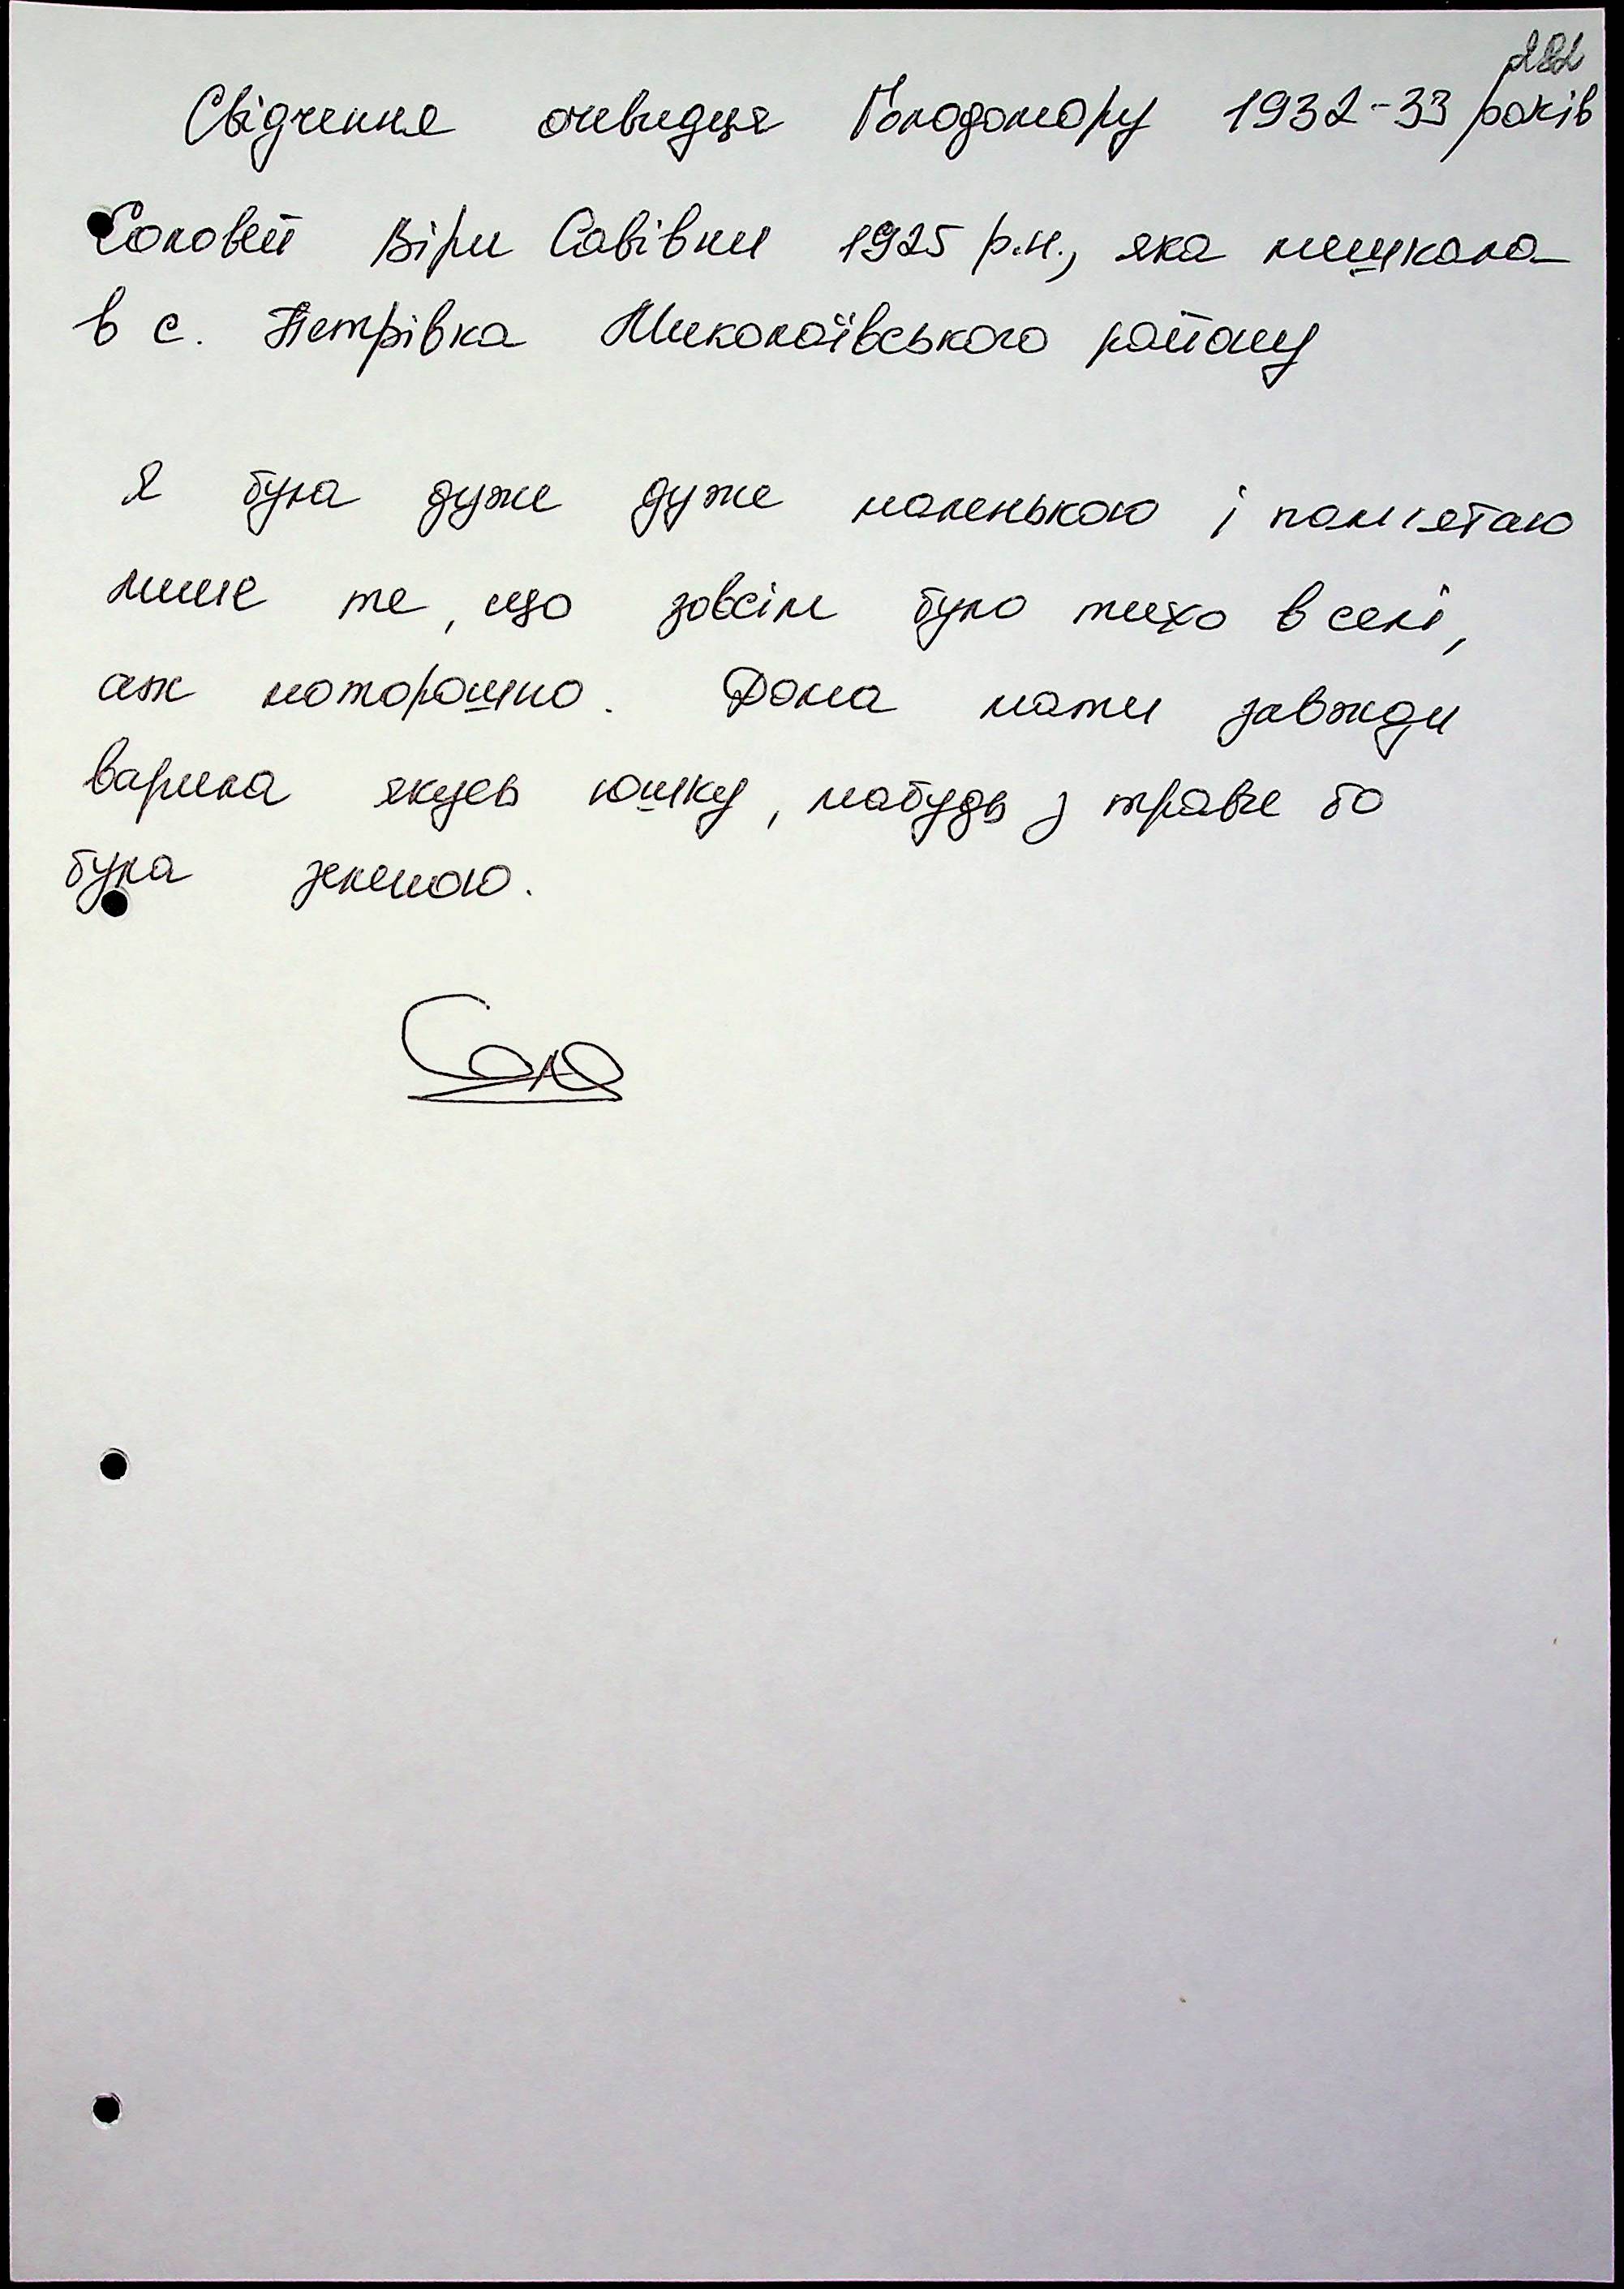 282
Свідчення очевидця Голодомору 1932-33 років
Соловей Віри Савівни 1925 р.н., яка мешкала
в с. Петрівка Миколаївського району
Я була дуже дуже маленькою і пам'ятаю
лише те, що зовсім було тихо в селі,
аж моторошно. Дома мати завжди
варила якусь юшку, мабудь з трави бо
була зеленою.